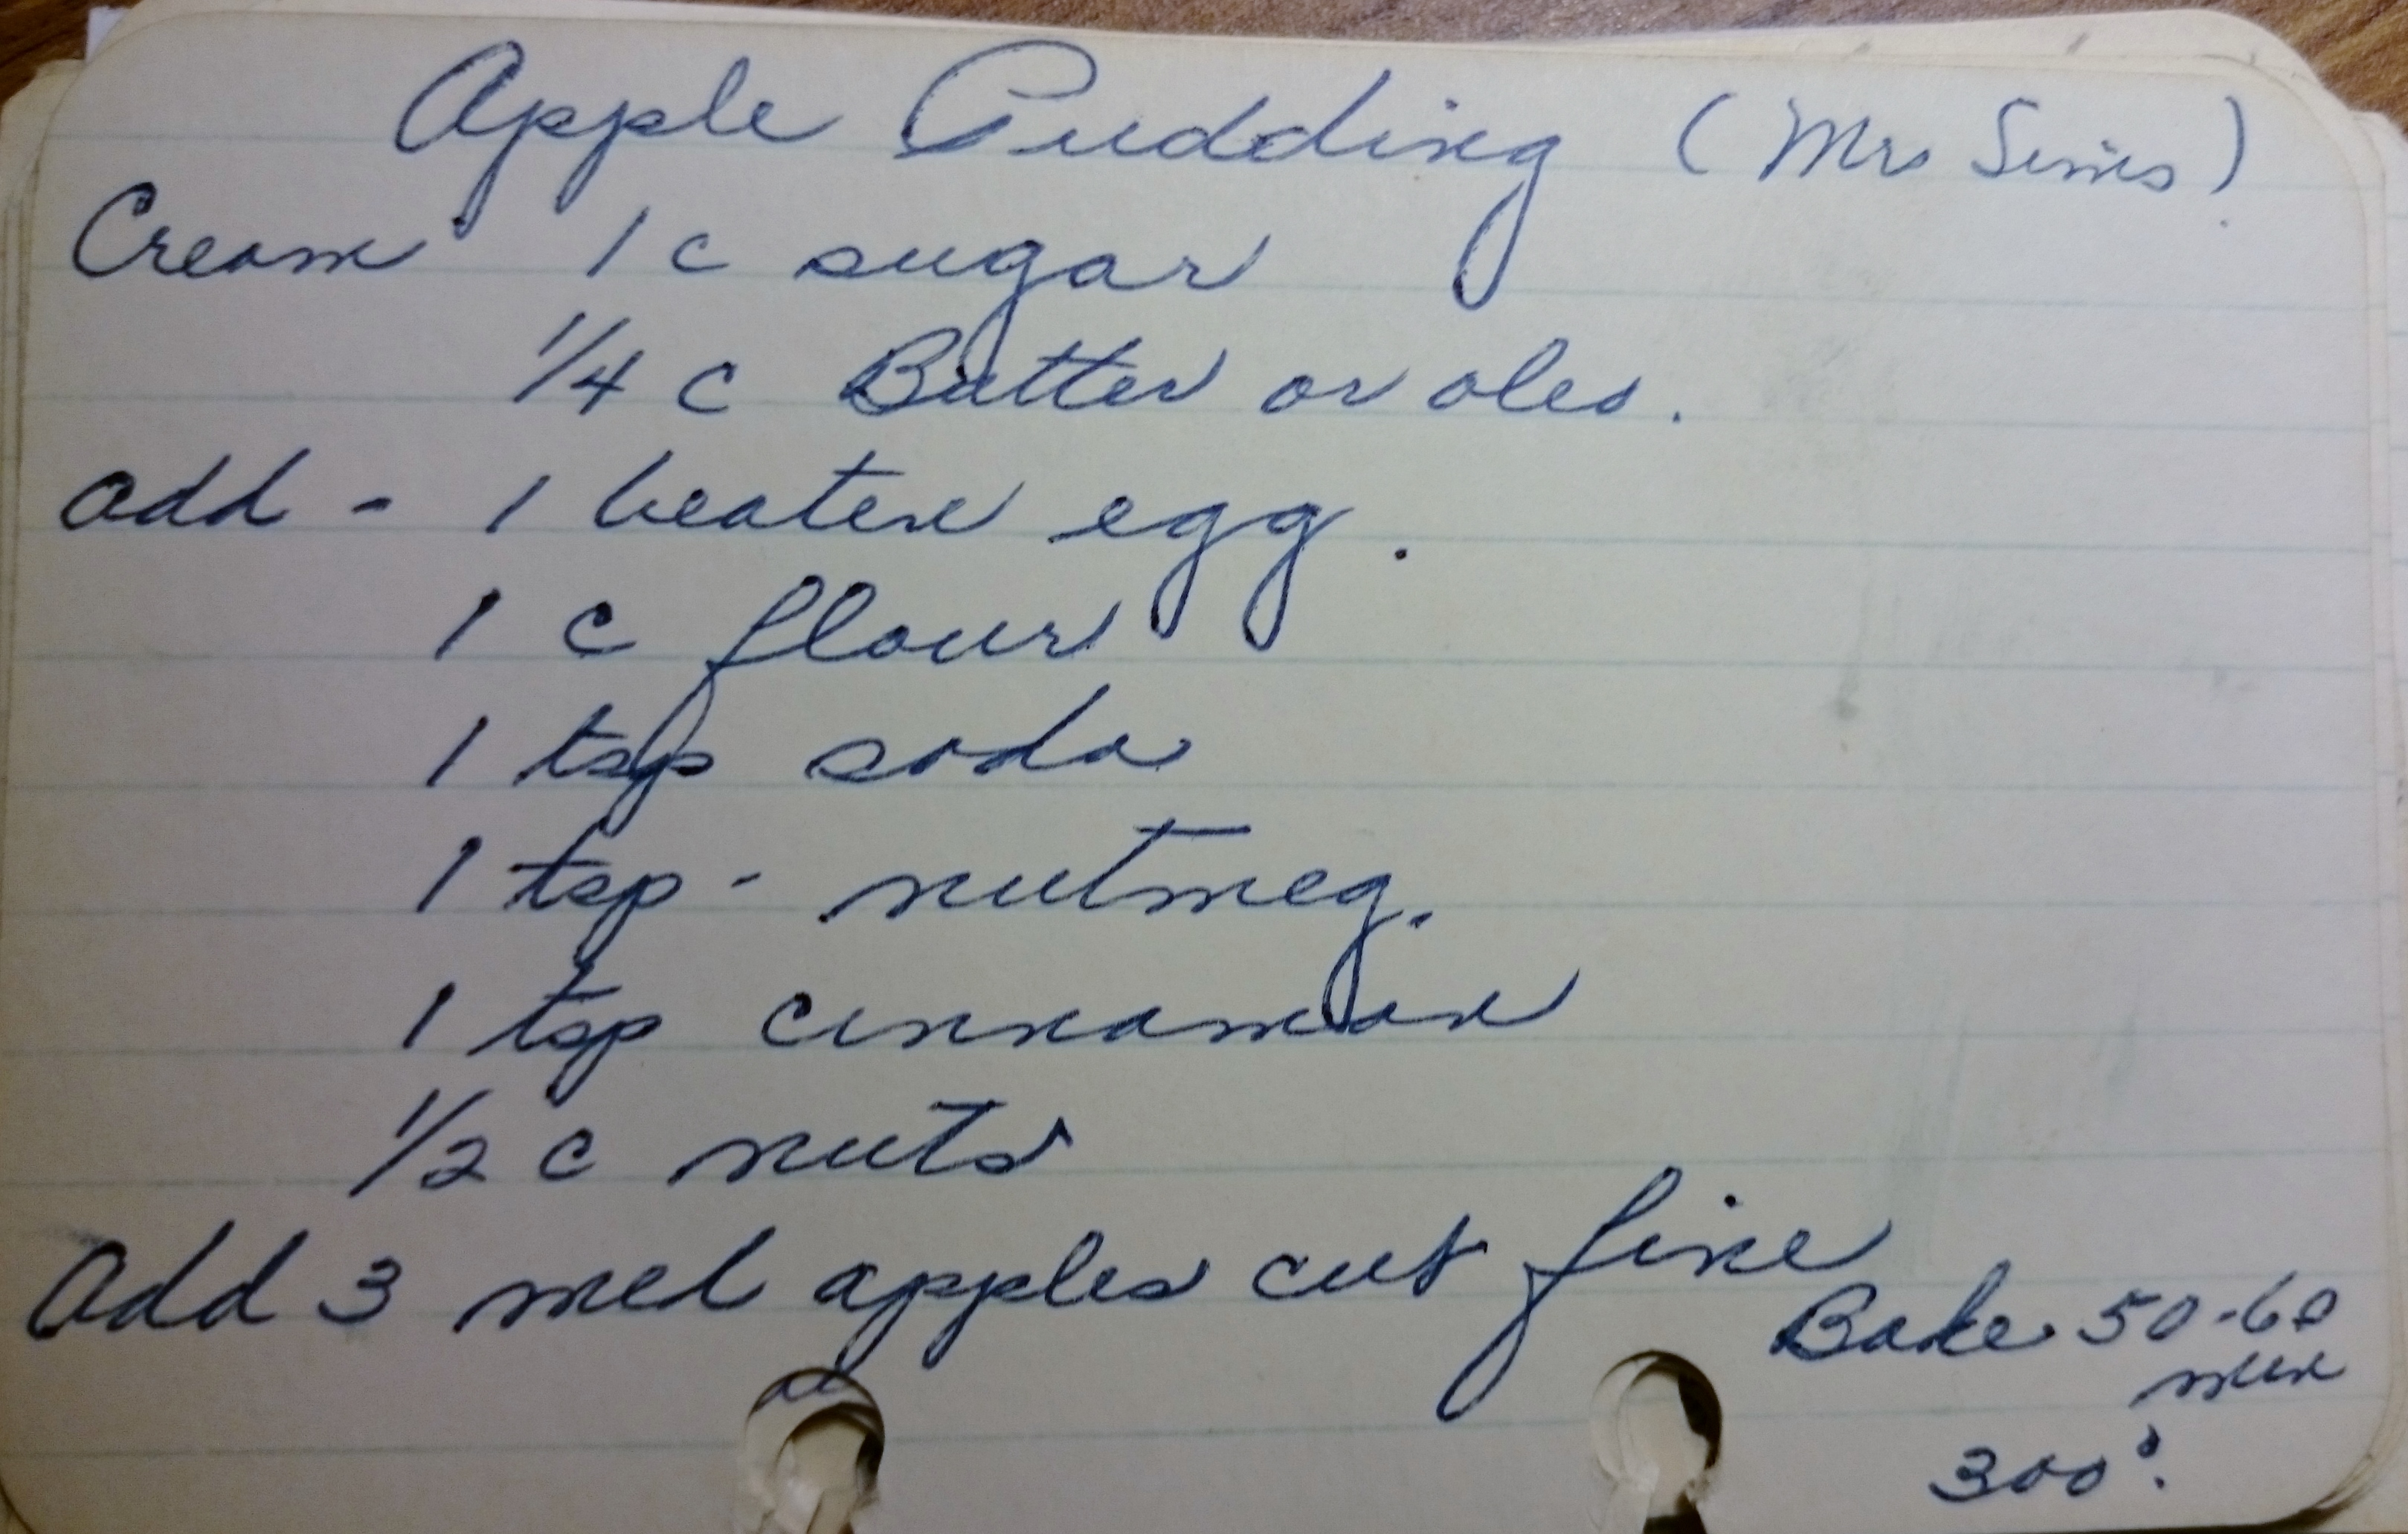 Apple Pudding (Mrs Simes)
Cream 1 c sugar
1/4 c Butter or oleo.
Add - 1 beaten egg.
1 c flour
1 tsp soda
1 tsp - nutmeg.
1 tsp cinnamon
1/2 c nuts
Add 3 med apples cut fine
Bake 50-60
min
300°.